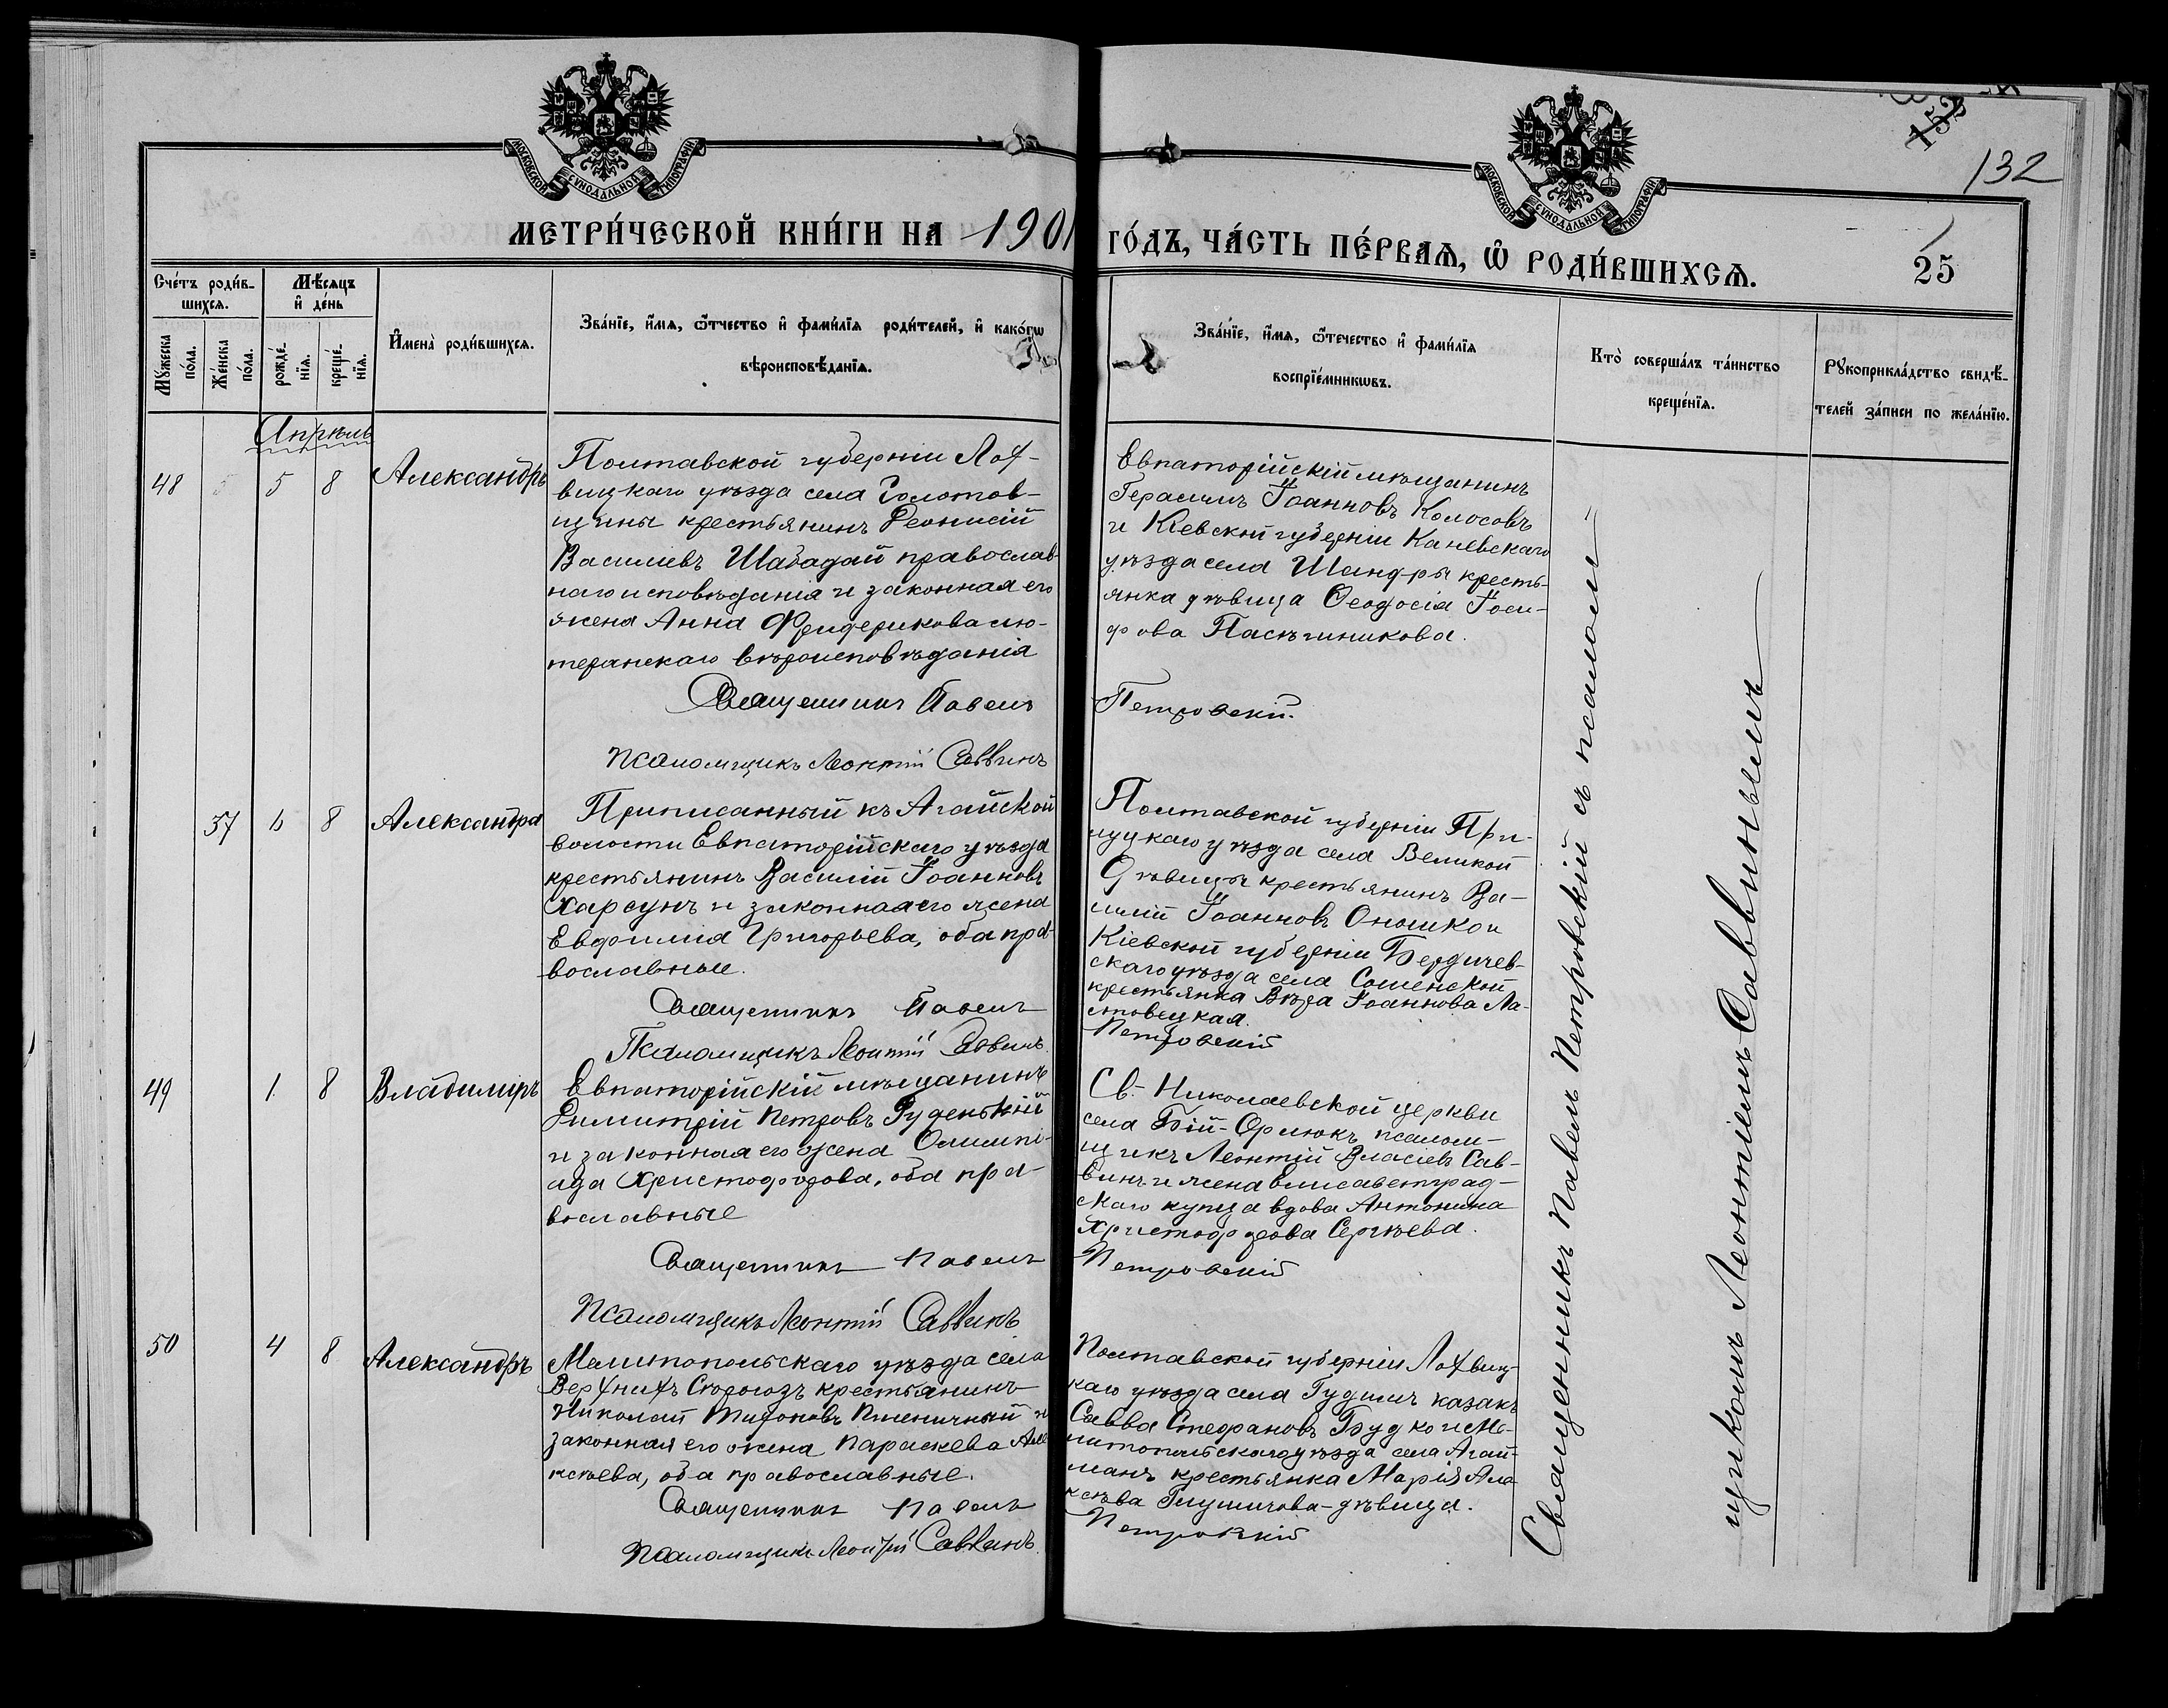 МОСКОВСКОЙ СѴНОДАЛЬНОЙ ТИПОГРАФІИ
МОСКОВСКОЙ СѴНОДАЛЬНОЙ ТИПОГРАФІИ
152
132
МЕТРИ́ЧЕСКОЙ КНИ́ГИ НА 1901 ГО́ДЪ, ЧА́СТЬ ПЕ́РВАѦ, Ѡ҆ РОДИ́ВШИХСѦ.
25
Сче́тъ роди́в-
шихсѧ.
Мѣ́сѧцъ
и҆ де́нь
Мꙋ́жеска
по́ла.
Же́нска
по́ла.
рожде́-
нїѧ.
креще́-
нїѧ.
И҆мена̀ роди́вшихсѧ.
Зва́нїе, и҆́мѧ, ѻ҆́тчество и҆ фамі́лїѧ роди́телей, и҆ како́гѡ
вѣроисповѣ́данїѧ.
Зва́нїе, и҆́мѧ, ѻ҆те́чество и҆ фамі́лїѧ
воспрїе́мникѡвъ.
Кто̀ соверша́лъ та́инство
креще́нїѧ.
Рꙋкоприкла́дство свидѣ́-
телей за́писи по жела́нїю.
Апрѣль
48
5
8
Александръ
Полтавской губерніи Лох-
вицкаго уѣзда села Голотов-
щины крестьянинъ Деонисій
Василіевъ Шабадай православ-
наго исповѣданія и законная его
жена Анна Фридерикова лю-
теранскаго вѣроисповѣданія
Священникъ Павелъ
Псаломщикъ Леонтій Саввинъ
Евпаторійскій мѣщанинъ
Герасимъ Іоанновъ Колосовъ
и Кіевской губерніи Каневскаго
уѣзда села Шендры кресть-
янка дѣвица Ѳеодосія Іоси-
фова Пасѣчникова.
Петровскій.
37
6
8
Александра
Приписанный къ Агайской
волости Евпаторійскаго уѣзда
крестьянинъ Василій Іоанновъ
Харсунъ и законная его жена
Евфимія Григорьева, оба пра-
вославные.
Священникъ Павелъ
Псаломщикъ Леонтій Саввинъ
Полтавской губерніи При-
луцкаго уѣзда села Великой
Дѣвицы крестьянинъ Ва-
силій Іоанновъ Оношко и
Кіевской губерніи Бердичев-
скаго уѣзда села
крестьянка Вѣра Іоаннова
Петровскій
49
1
8
Владиміръ
Евпаторійскій мѣщанинъ
Димитрій Петровъ Руденькій
и законная его жена Олимпі-
ада Христофорова, оба пра-
вославные
Священникъ Павелъ
Псаломщикъ Леонтій Саввинъ
Св. Николаевской церкви
села Бій-Орлюкъ псалом-
щикъ Леонтій Власіевъ Сав-
винъ и жена елисаветград-
скаго купца вдова Антонина
Христофорова Сергѣева.
Петровскій
50
4
8
Александръ
Мелитопольскаго уѣзда села
Верхнихъ Сѣрогозъ крестьянинъ
Николай Тихоновъ Пшеничный и
законная его жена Параскева Але
ксѣева, оба православные.
Священникъ Павелъ
Псаломщикъ Леонтій Саввинъ
Полтавской губерніи Лохвиц-
каго уѣзда села Гудимъ казакъ
Савва Стефановъ Будко и Ме-
литопольскаго уѣзда села Агай-
манъ крестьянка Марія Але
ксѣева Глушичова-дѣвица.
Петровскій
Священникъ Павелъ Петровскій съ псалом-
щикомъ Леонтіемъ Саввинымъ